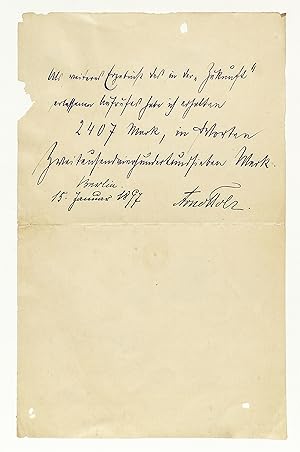 Als weiteres Ergebniß des in der „Zukunft"
erlassenen Aufrufes habe ich erhalten
2407 Mark, in Worten
Zweitausendvierhundertundsieben Mark.
Berlin.
15. Januar 1897 Arno Holz.